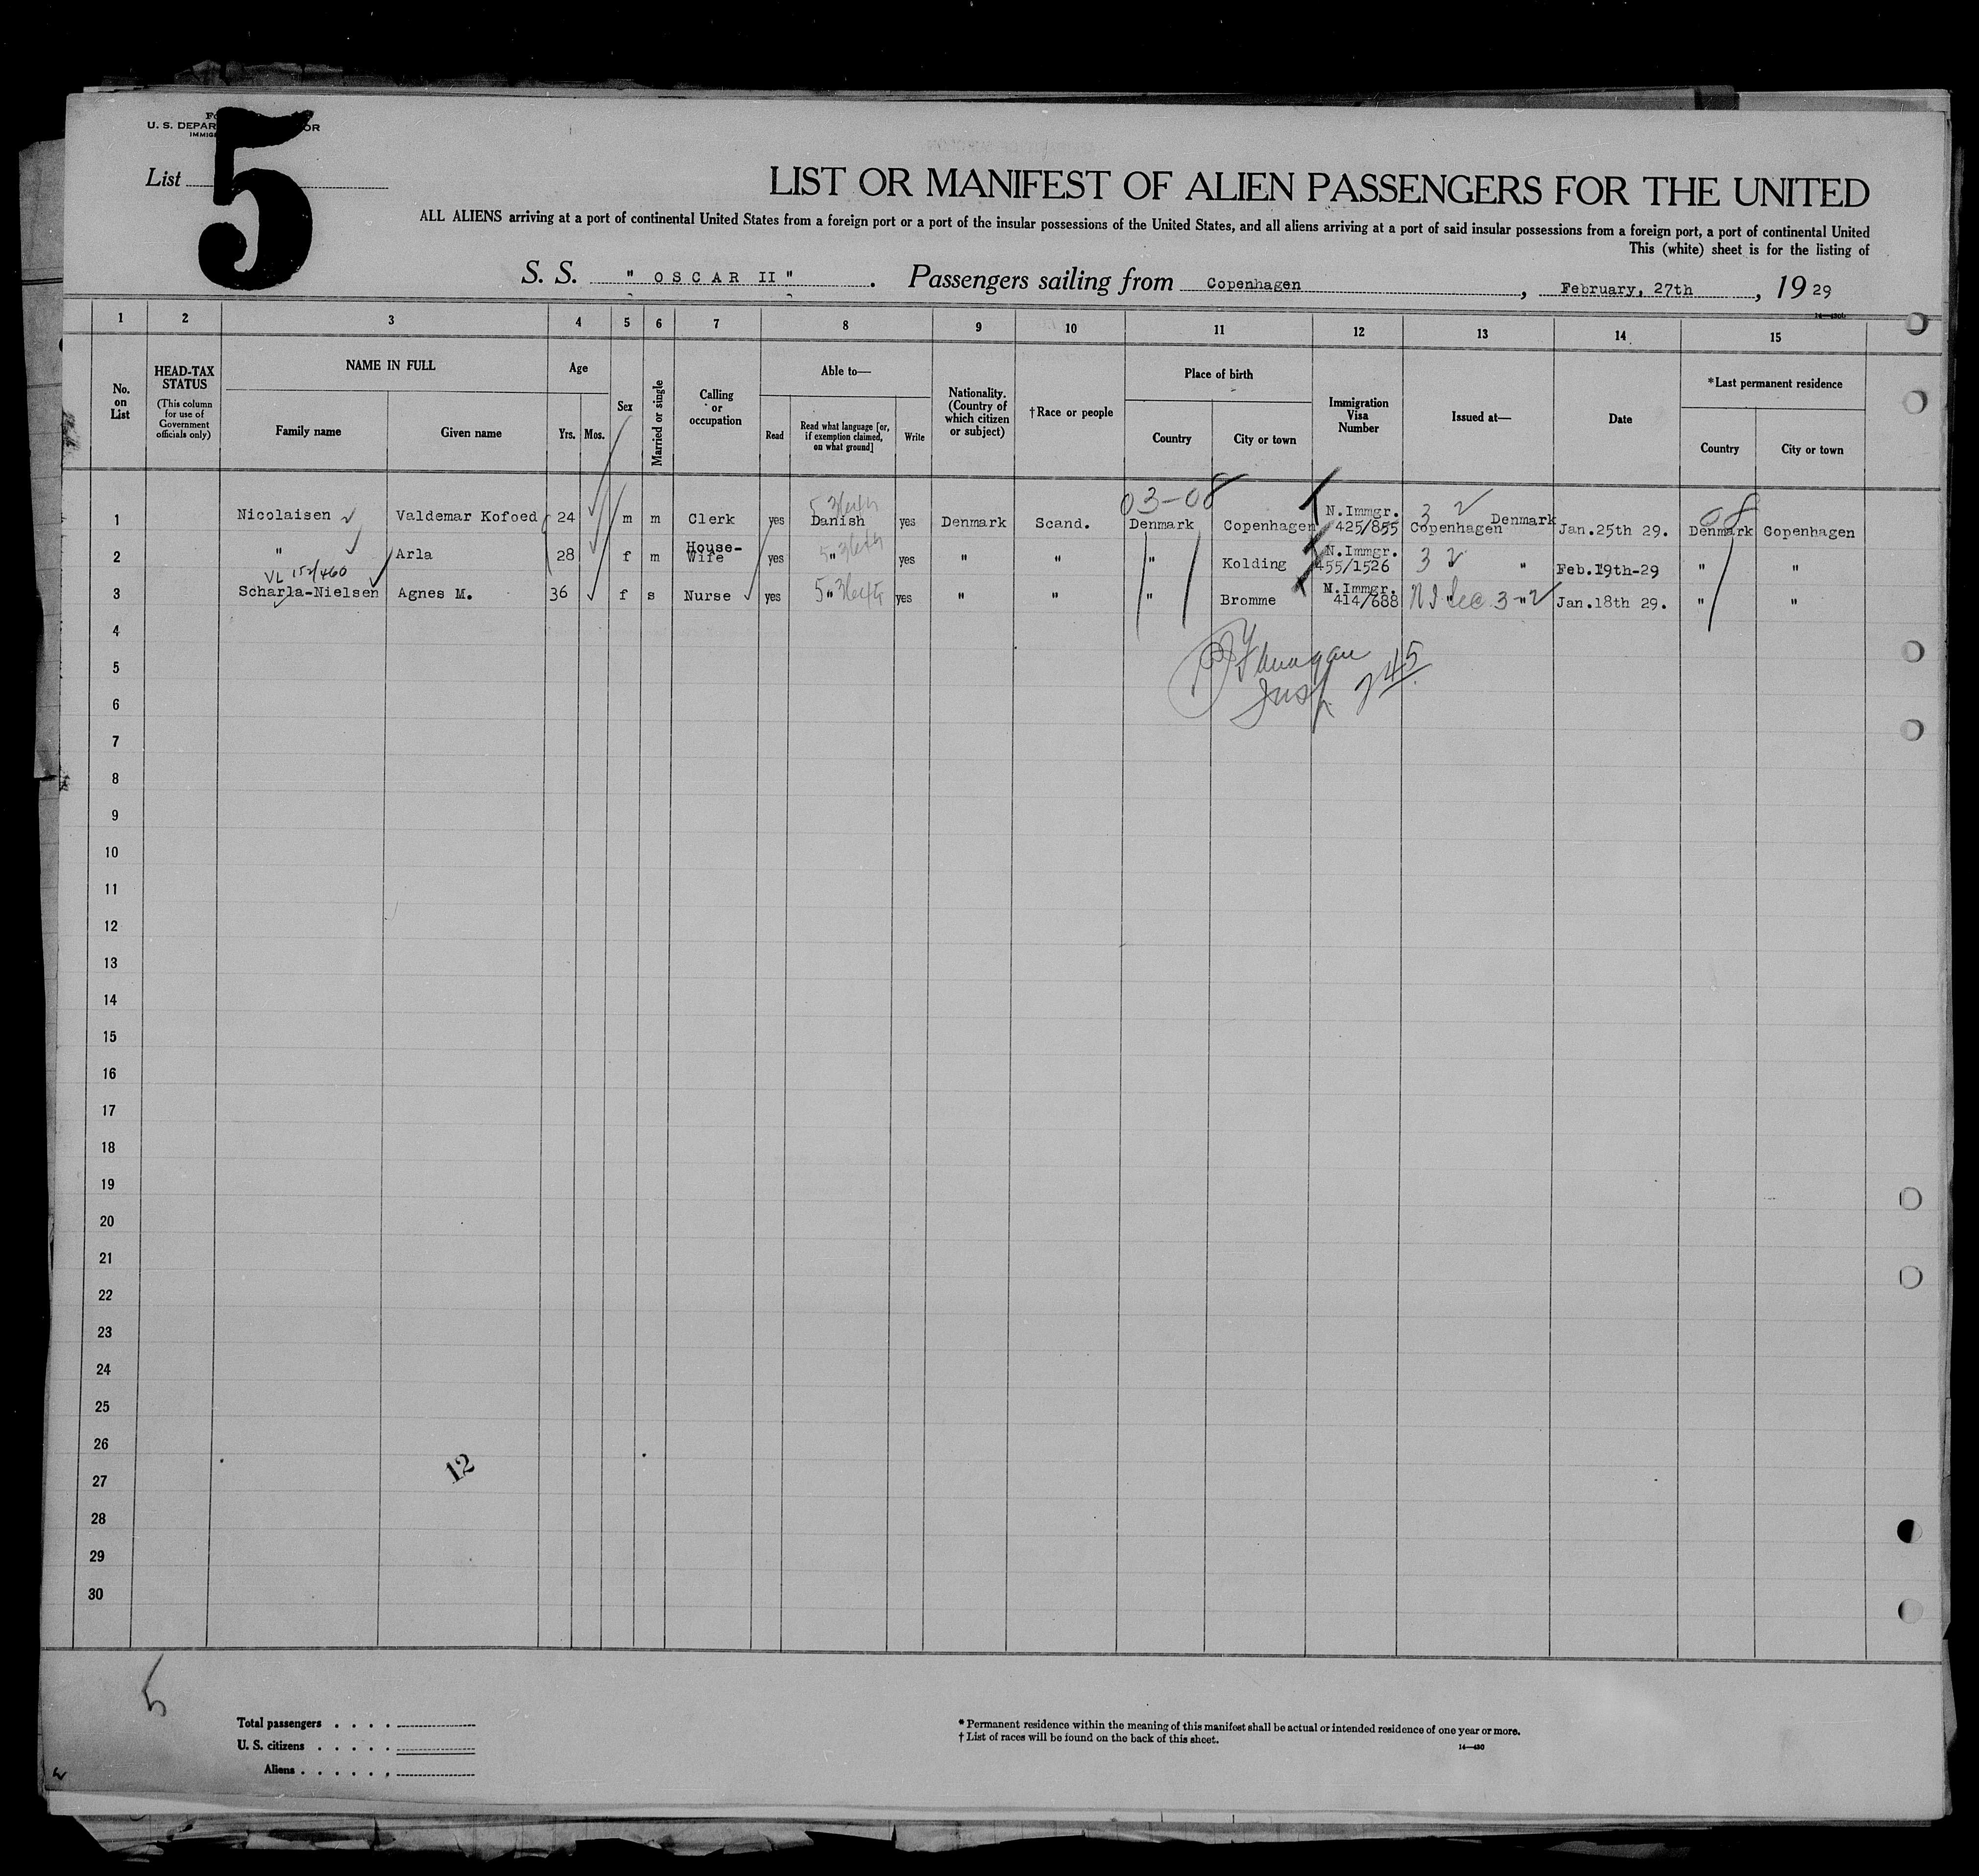 5
U. S. DEPAR OR
IMMIG
List
LIST OR MANIFEST OF ALIEN PASSENGERS FOR THE UNITED
ALL ALIENS arriving at a port of continental United States from a foreign port or a port of the insular possessions of the United States, and all aliens arriving at a port of said insular possessions from a foreign port, a port of continental United
This (white) sheet is for the listing of
S. S. " OSCAR II " . Passengers sailing from Copenhagen , February, 27th , 19 29
14—430b
1 2 3 4 5 6 7 8 9 10 11 12 13 14 15
No. on List
HEAD-TAX STATUS
(This column for use of Government officials only)
NAME IN FULL
Family name
Given name
Age
Yrs. Mos.
Sex
Married or single
Calling or occupation
Able to—
Read
Read what language [or, if exemption claimed, on what ground]
Write
Nationality. (Country of which citizen or subject)
†Race or people
Place of birth
Country
City or town
Immigration Visa Number
Issued at—
Date
*Last permanent residence
Country
City or town
03-08 3 2 08
1 Nicolaisen Valdemar Kofoed 24 m m Clerk yes Danish yes Denmark Scand. Denmark Copenhagen N.Immgr. 425/855 Copenhagen Denmark Jan.25th 29. Denmark Copenhagen
2 " Arla 28 f m House-Wife yes " yes " " " Kolding N.Immgr. 455/1526 3 2 " Feb.19th-29 " "
VL 152/460
3 Scharla-Nielsen Agnes M. 36 f s Nurse yes " yes " " " Bromme N.Immgr. 414/688 3-2 " Jan.18th 29. " "
4
5
Insp. 245
6
7
8
9
10
11
12
13
14
15
16
17
18
19
20
21
22
23
24
25
26
12
27
28
29
30
5
Total passengers . . . .
U. S. citizens . . . . .
Aliens . . . . . .
* Permanent residence within the meaning of this manifest shall be actual or intended residence of one year or more.
† List of races will be found on the back of this sheet.
14—430